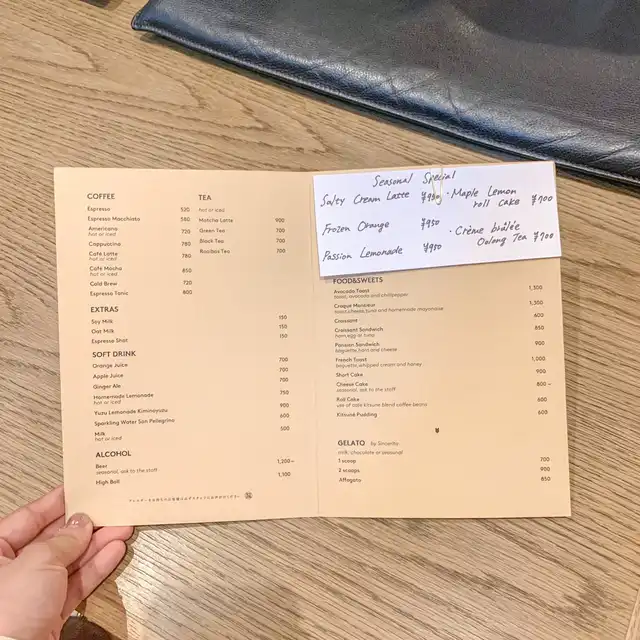 COFFEE
Espresso 520
Espresso Macchiato 580
Americano 720
hot or iced
Cappuccino 780
Café Latte 780
hot or iced
Café Mocha 850
hot or iced
Cold Brew 720
Espresso Tonic 800
TEA
hot or iced
Matcha Latte 900
Green Tea 700
Black Tea 700
Rooibos Tea 700
EXTRAS
Soy Milk 150
Oat Milk 150
Espresso Shot 150
SOFT DRINK
Orange Juice 700
Apple Juice 700
Ginger Ale 700
Homemade Lemonade 750
hot or iced
Yuzu Lemonade Kiminoyuzu 900
Sparkling Water San Pellegrino 600
Milk 500
hot or iced
ALCOHOL
Beer 1,200~
seasonal, ask to the staff
High Ball 1,100
Seasonal Special
Salty Cream Latte ¥950
Frozen Orange ¥950
Passion Lemonade ¥950
・Maple Lemon
roll cake ¥700
・Crème brûlée
Oolong Tea ¥700
FOOD&SWEETS
Avocado Toast 1,300
toast, avocado and chilipepper
Croque Monsieur 1,300
toast,cheese,tuna and homemade mayonaise
Croissant 600
Croissant Sandwich 850
ham,egg or tuna
Parisian Sandwich 900
baguette,ham and cheese
French Toast 1,000
baguette,whipped cream and honey
Short Cake 900
Cheese Cake 800~
seasonal, ask to the staff
Roll Cake 600
use of cafe kitsune blend coffee beans
Kitsuné Pudding 600
GELATO by Sincerita
milk, chocolate or seasonal
1 scoop 700
2 scoops 900
Affogato 850